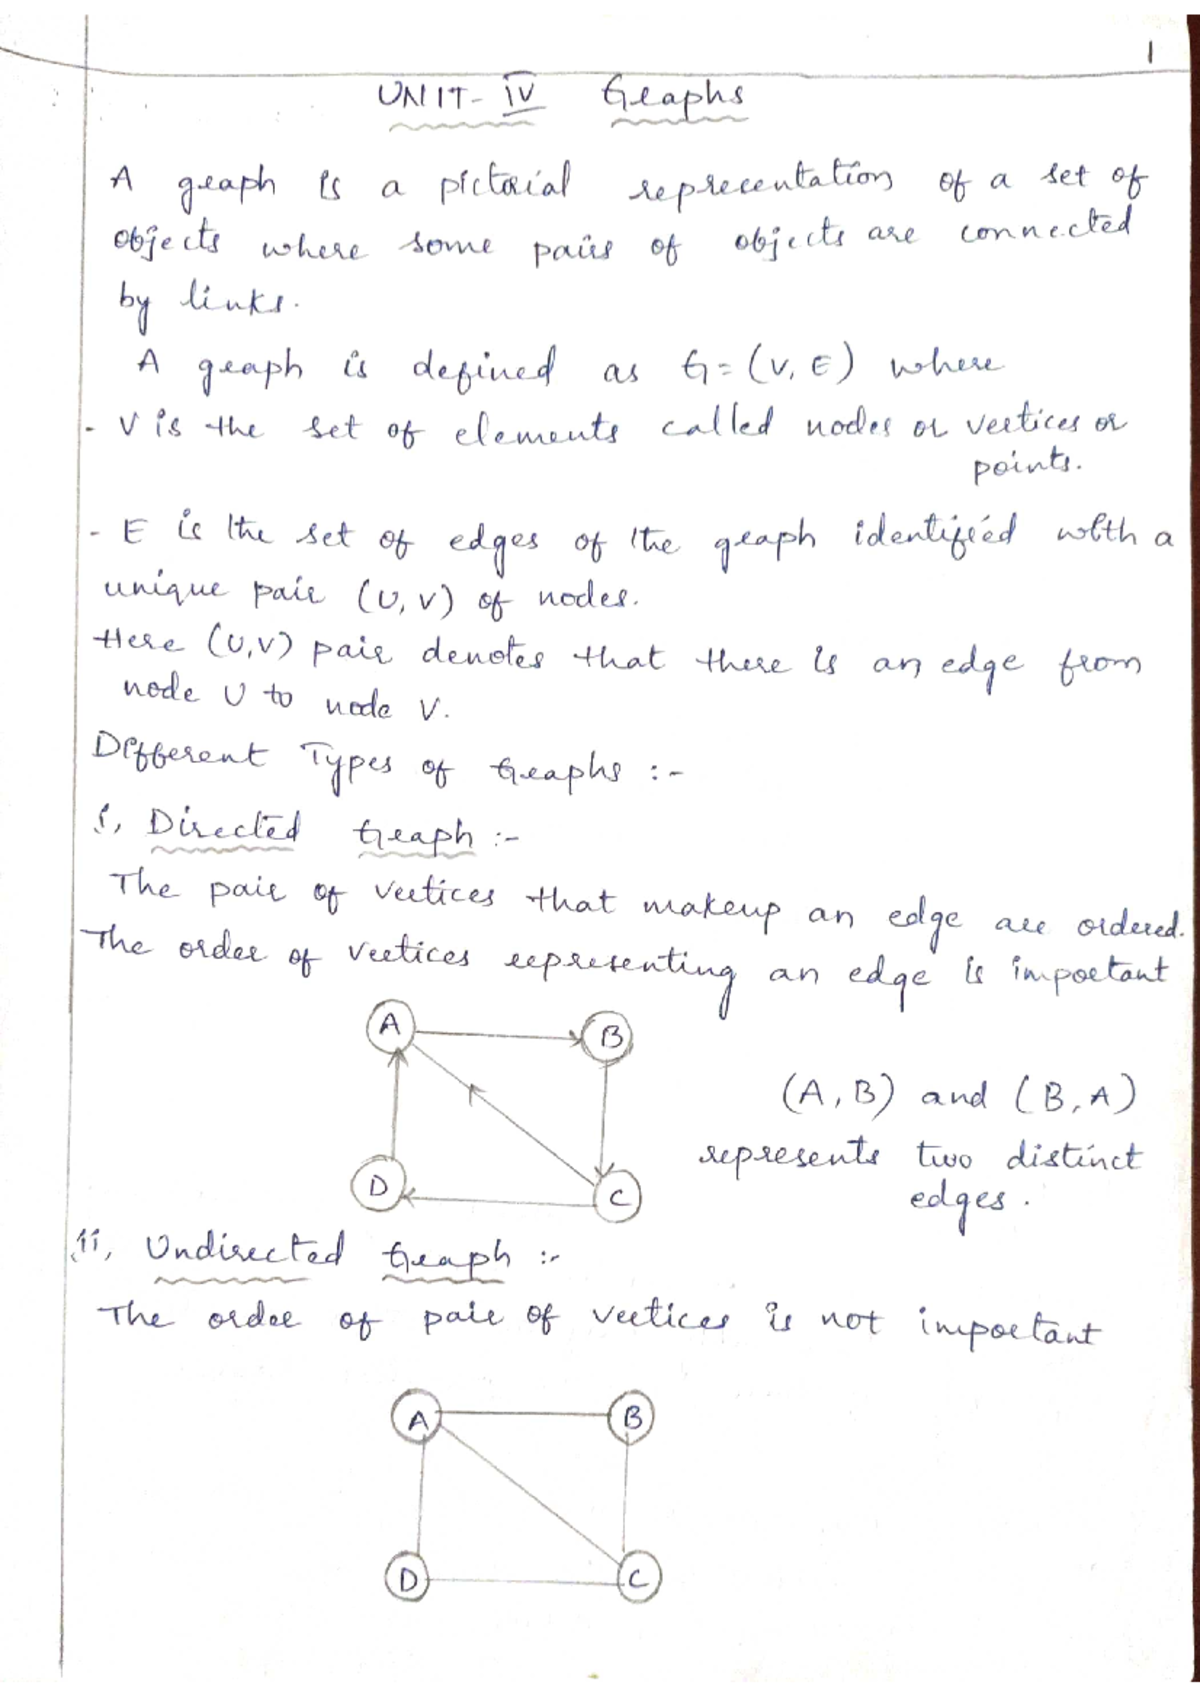 1
UNIT-IV Graphs
A graph is a pictorial representation of a set of
objects where some pairs of objects are connected
by links.
A graph is defined as G=(V, E) where
- V is the set of elements called nodes or vertices or
points.
- E is the set of edges of the graph identified with a
unique pair (U, V) of nodes.
Here (U,V) pair denotes that there is an edge from
node U to node V.
Different Types of Graphs :-
i, Directed Graph :-
The pair of vertices that makeup an edge are ordered.
The order of vertices representing an edge is important
A
B
(A, B) and (B, A)
represents two distinct
D
C
edges.
ii, Undirected Graph :-
The order of pair of vertices is not important
A
B
D
C